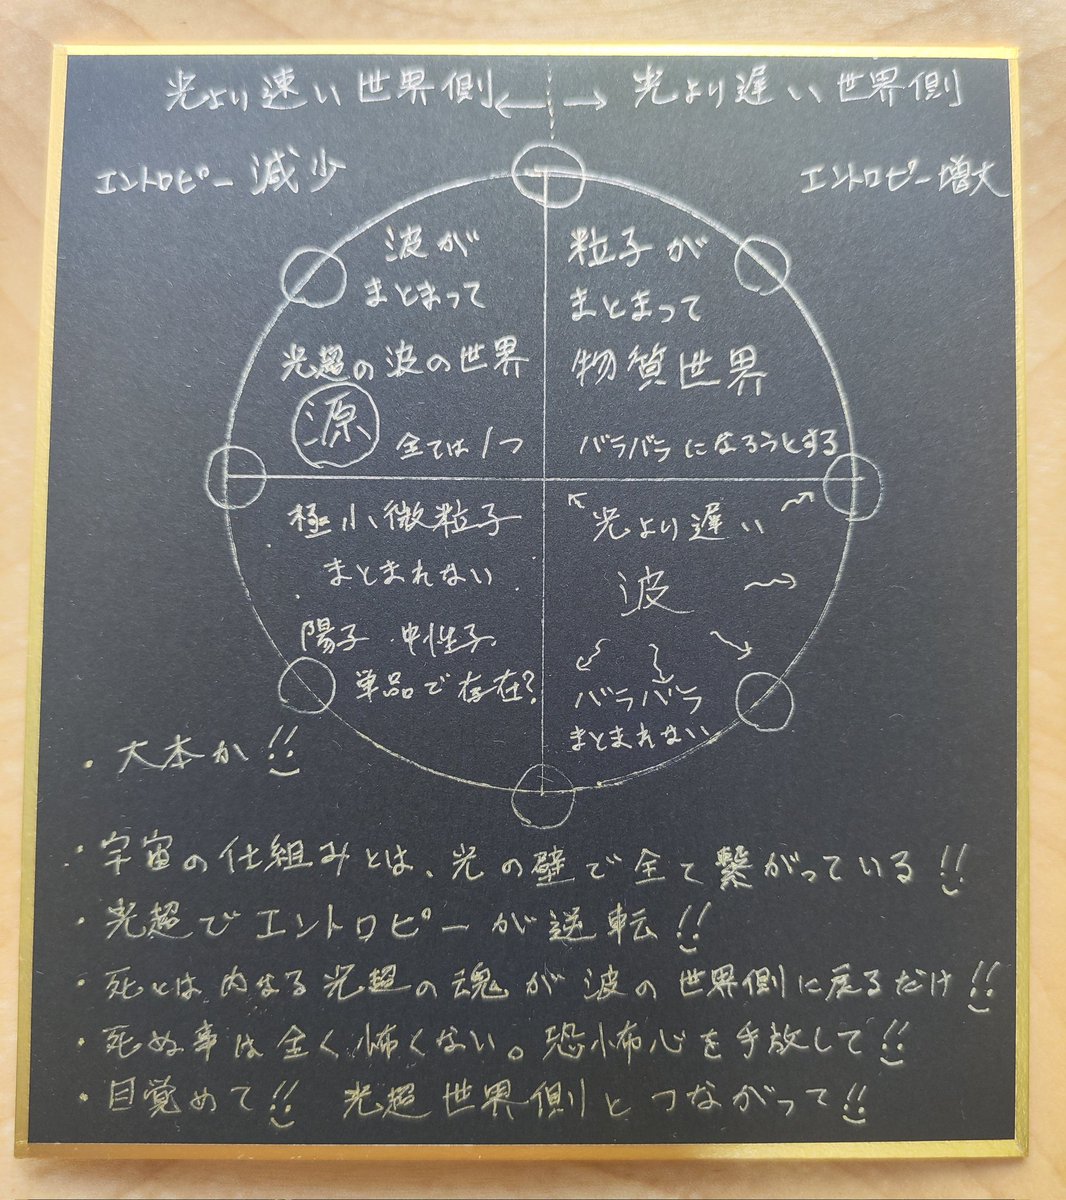 光より速い世界側 ←
→ 光より遅い世界側
エントロピー減少
エントロピー増大
波が
まとまって
光超の波の世界
源
全ては1つ
粒子が
まとまって
物質世界
バラバラになろうとする
極小微粒子
まとまれない
陽子・中性子
単品で存在?
光より遅い
波
バラバラ
まとまれない
・大本か!!
・宇宙の仕組みとは、光の壁で全て繋がっている!!
・光超でエントロピーが逆転!!
・死とは内なる光超の魂が波の世界側に戻るだけ!!
・死ぬ事は全く怖くない。恐怖心を手放して!!
・目覚めて!! 光超世界側とつながって!!